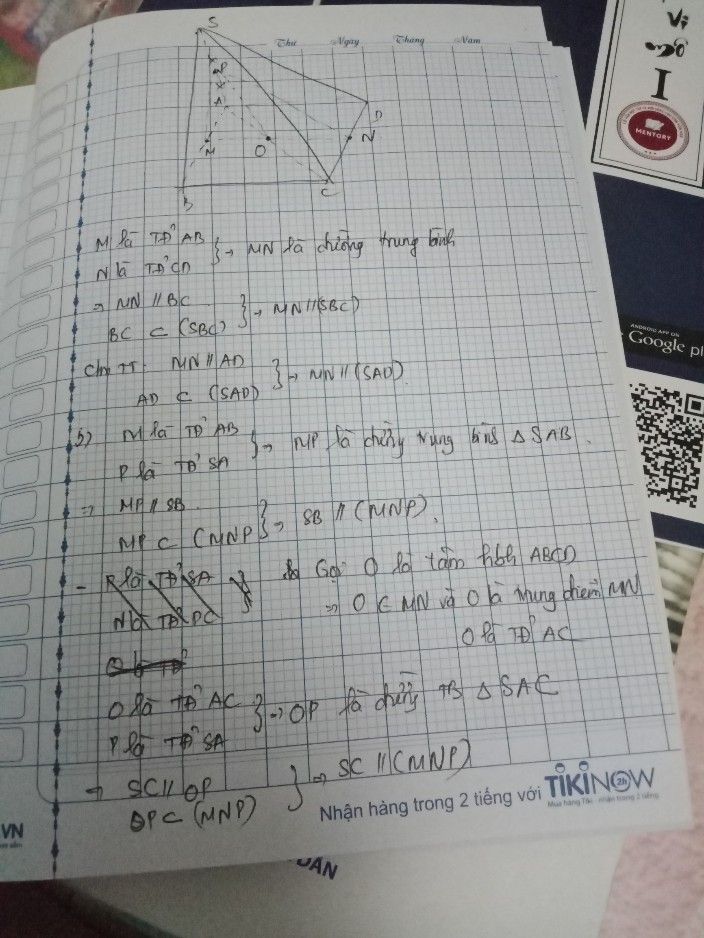 Thứ Ngày Tháng Năm
S
P
A
D
N
M
O
B
C
M là TĐ' AB
N là TĐ' CD } → MN là đường trung bình
⇒ MN // BC
BC ⊂ (SBC) } → MN // (SBC)
CM TT: MN // AD
AD ⊂ (SAD) } → MN // (SAD)
b) M là TĐ' AB
P là TĐ' SA } → MP là đường trung bình Δ SAB.
⇒ MP // SB
MP ⊂ (MNP) } → SB // (MNP).
Gọi O là tâm hbh ABCD
⇒ O ∈ MN và O là trung điểm MN
O là TĐ' AC
O là TĐ' AC
P là TĐ' SA } → OP là đường TB Δ SAC
→ SC // OP
OP ⊂ (MNP) } → SC // (MNP)
Nhận hàng trong 2 tiếng với TIKINOW 2h
Mua hàng Tiki - nhận trong 2 tiếng
VN
Vi
I
MENTORY
ANDROID APP ON
Google pl